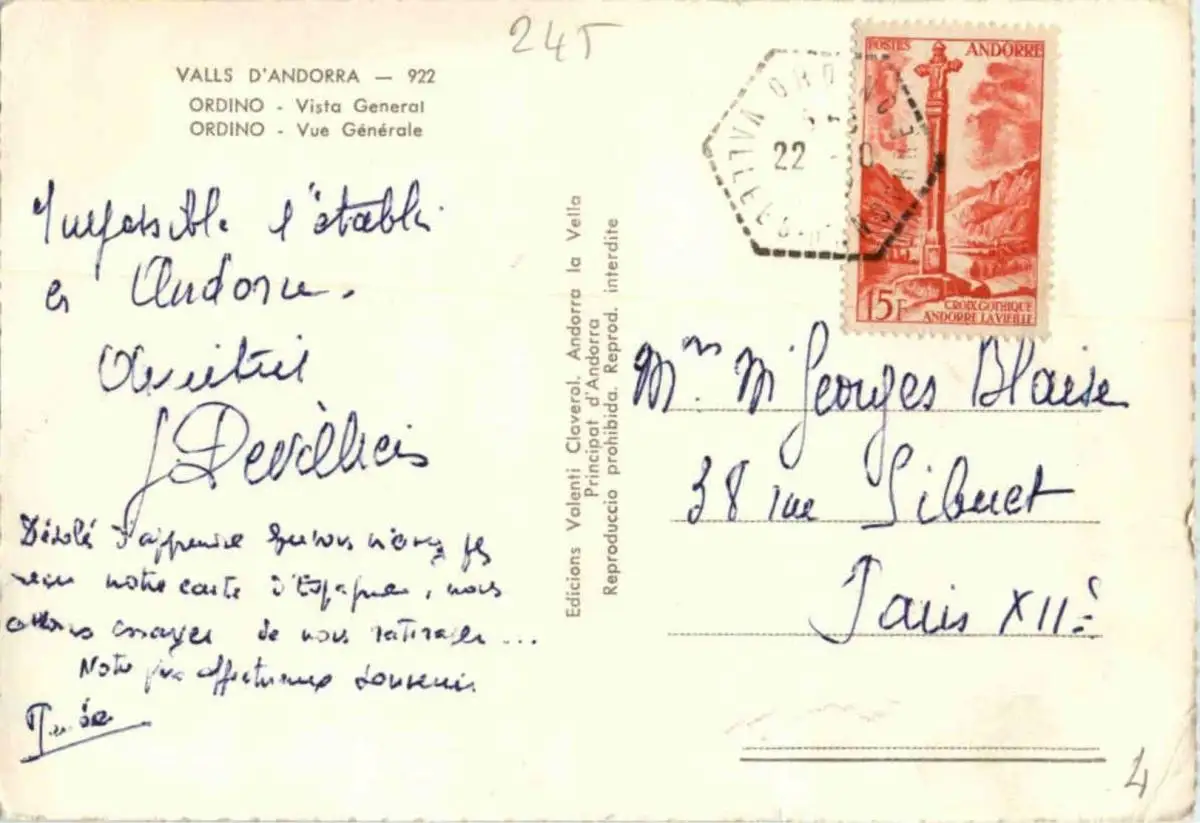 24T
VALLS D'ANDORRA — 922
ORDINO - Vista General
ORDINO - Vue Générale
Impossible s'établir
en Andorre.
Amitiés
Désolés d'apprendre que vous n'avez pas
reçu notre carte d'Espagne, nous
allons essayer de nous rattraper...
Notre plus affectueux souvenir
Edicions Valenti Claverol. Andorra la Vella
Principat d'Andorra
Reproduccio prohibida. Reprod. interdite
ORDINO
22
VALLEES
POSTES ANDORRE
15F
CROIX GOTHIQUE
ANDORRE LA VIEILLE
Georges Blaise
38 rue Sibuet
Paris XIIè
4